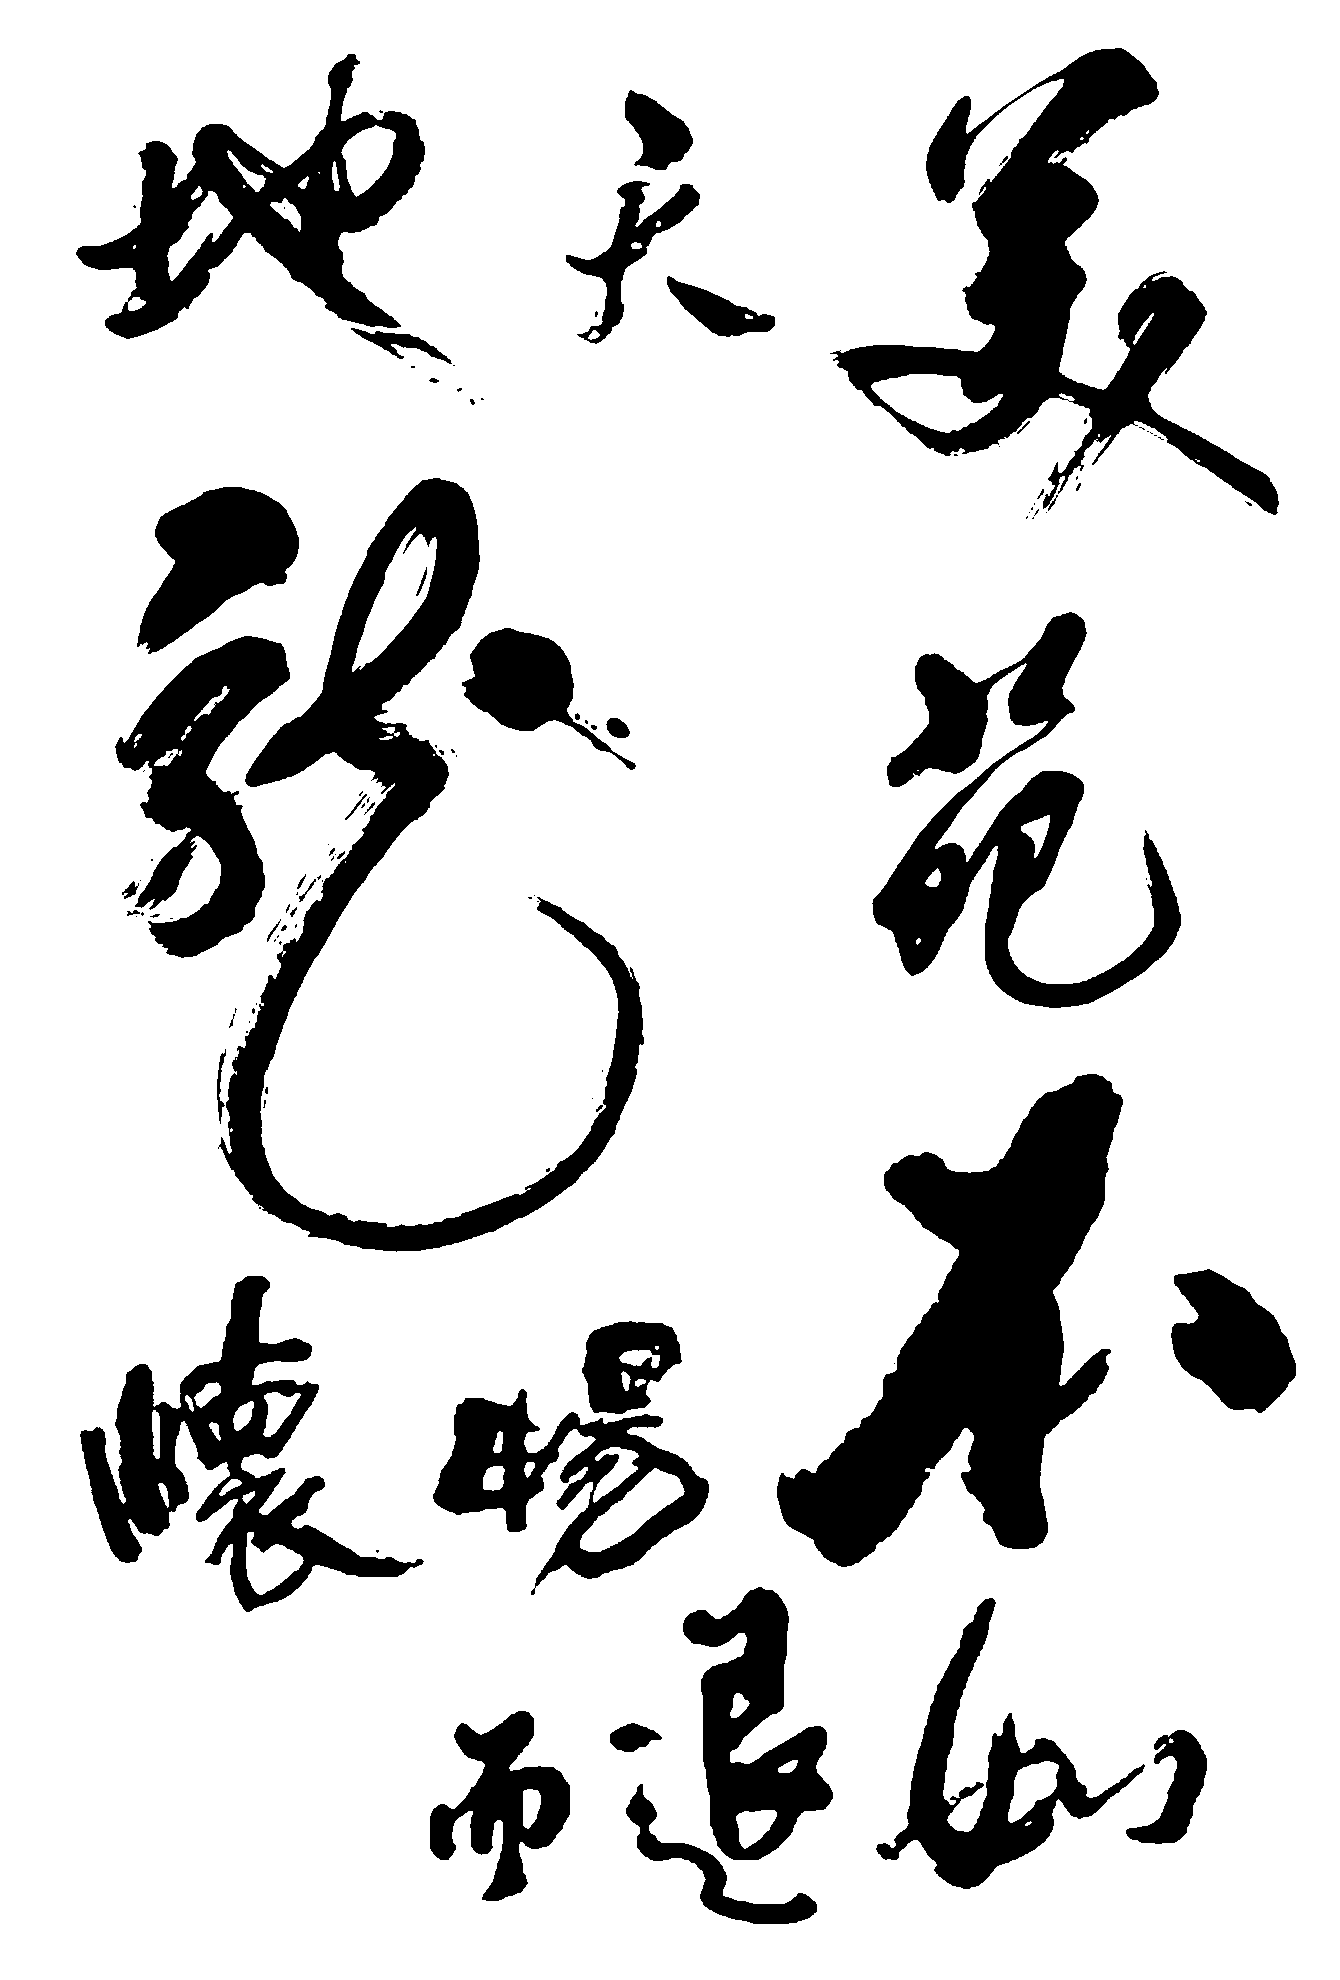 美天地
苑龍
不暢懷
如退而